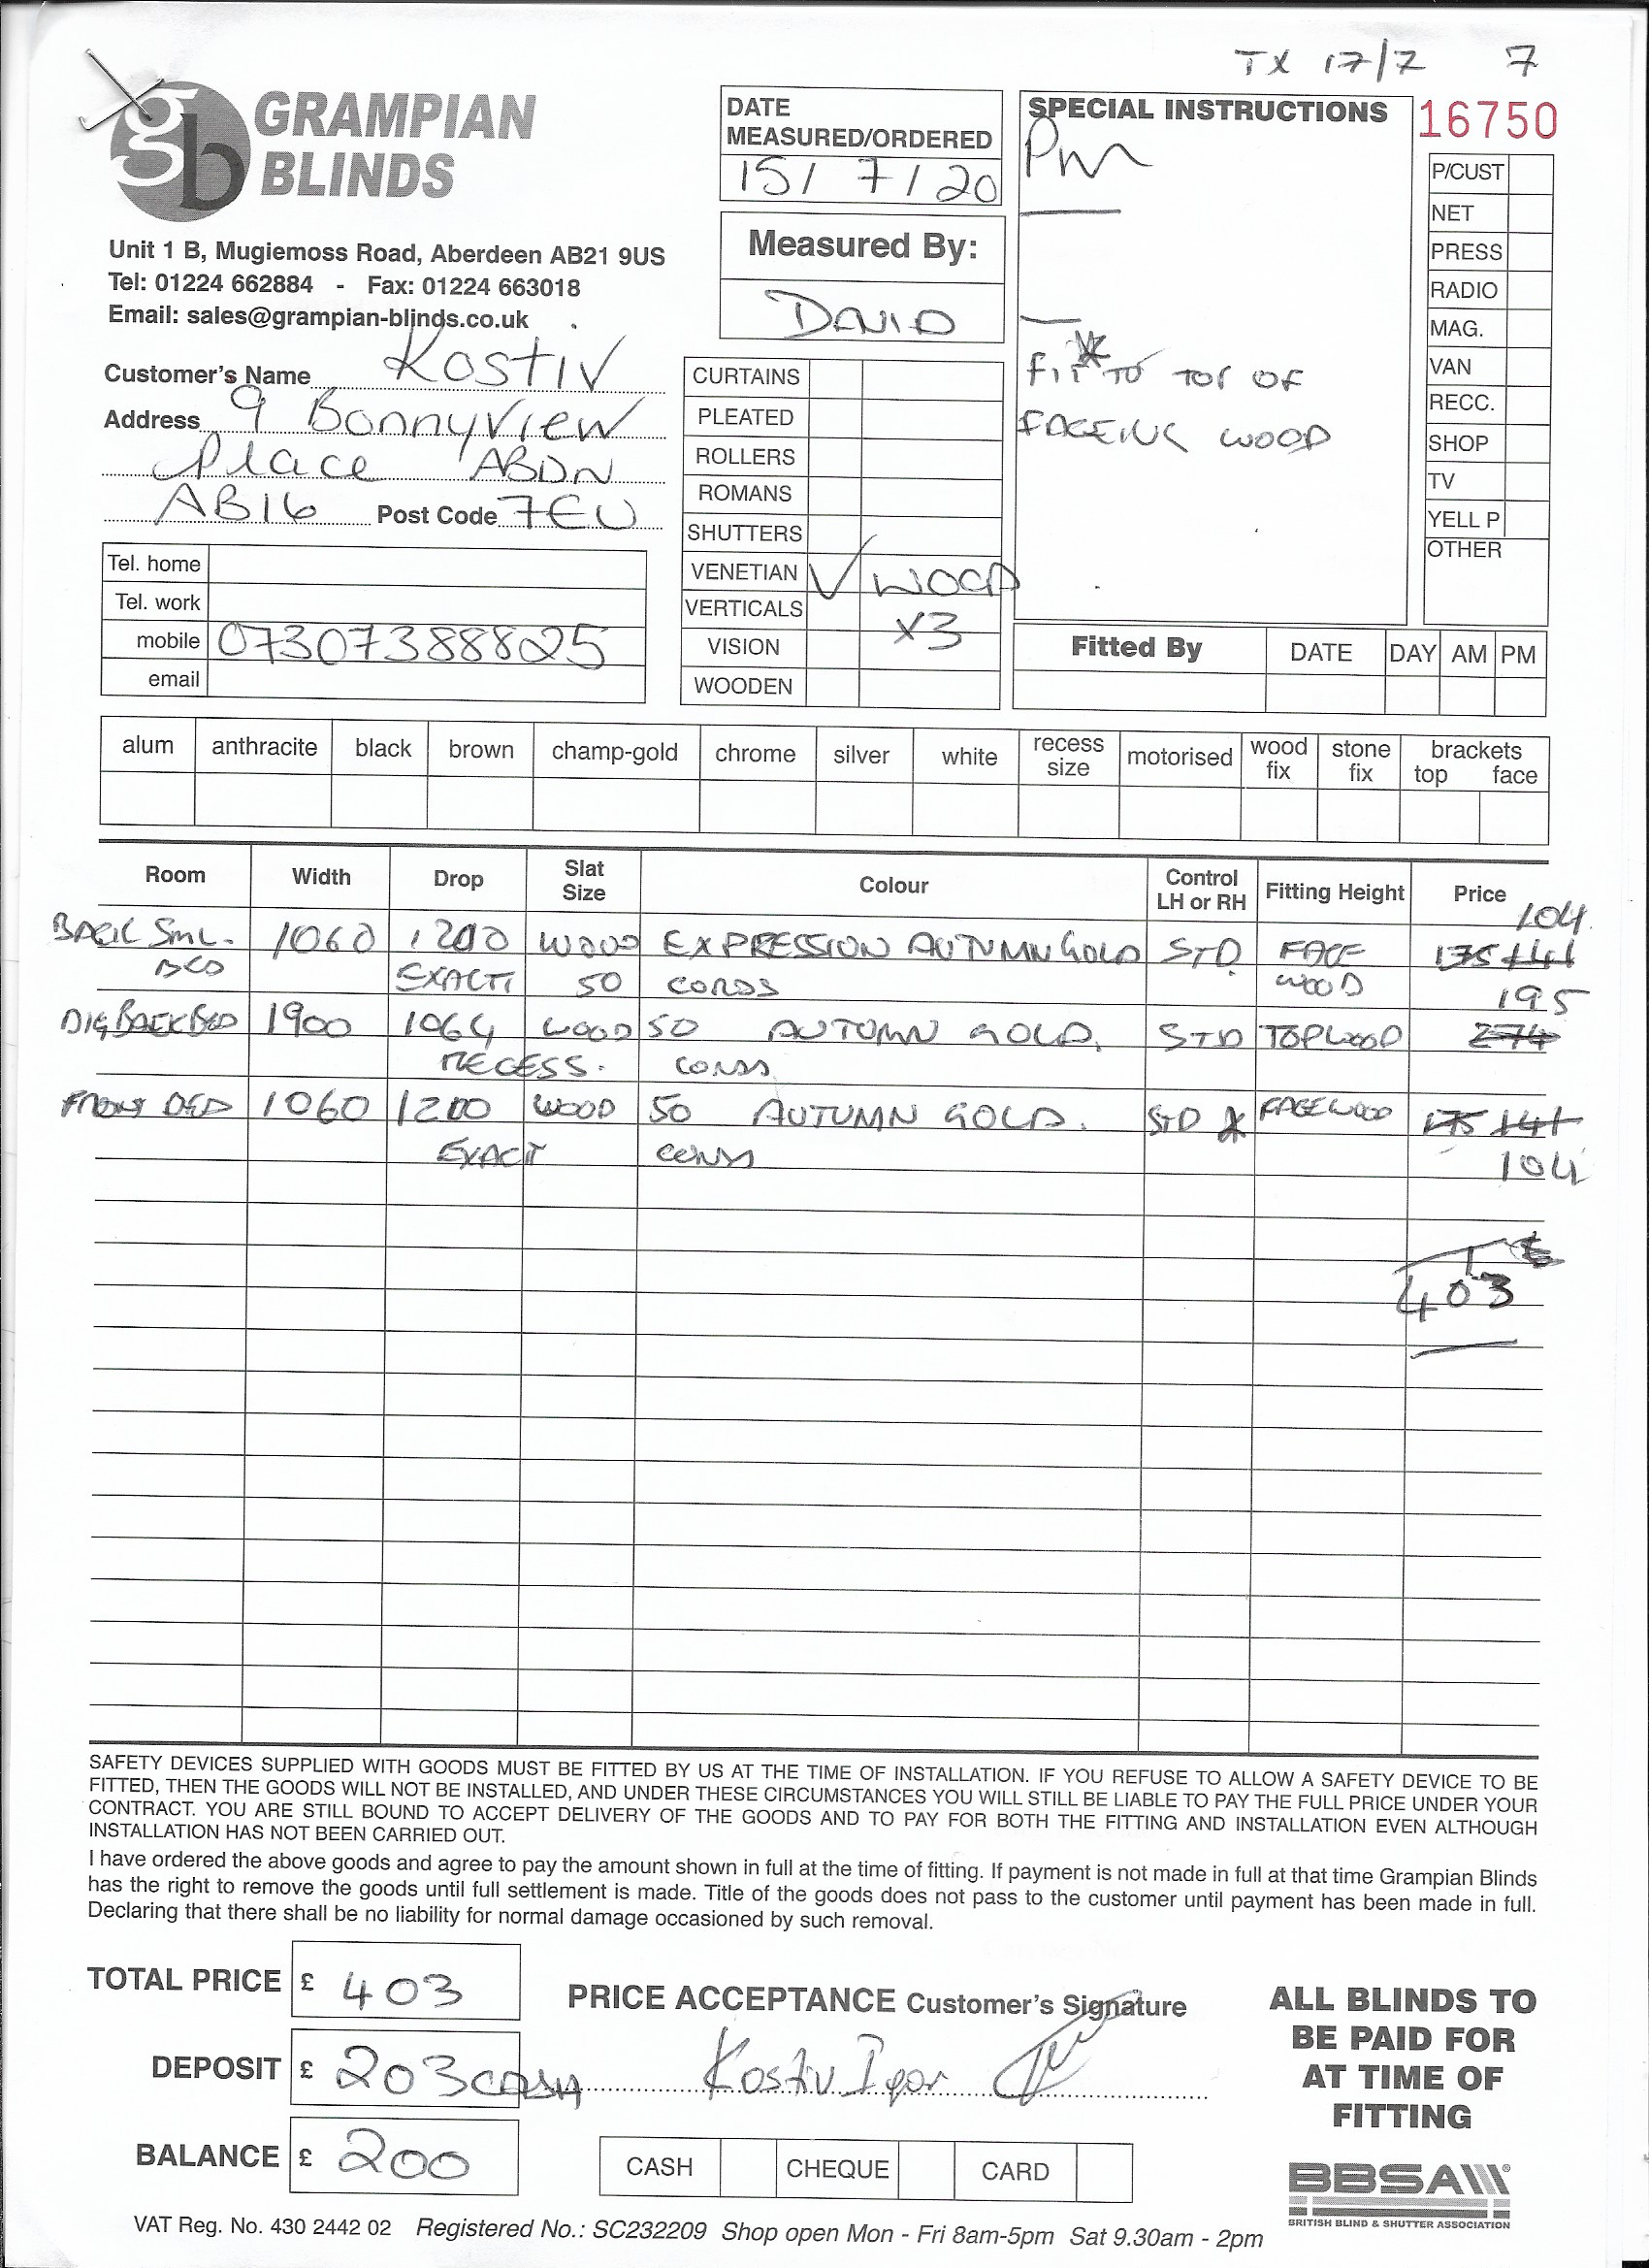 TX 17/7 7
gb GRAMPIAN
BLINDS
Unit 1 B, Mugiemoss Road, Aberdeen AB21 9US
Tel: 01224 662884 - Fax: 01224 663018
Email: sales@grampian-blinds.co.uk
Customer's Name Kostiv
Address 9 Bonnyview
Place ABDN
AB16 Post Code 7EU
Tel. home
Tel. work
mobile 07307388825
email
DATE
MEASURED/ORDERED
15/7/20
Measured By:
DAVID
CURTAINS
PLEATED
ROLLERS
ROMANS
SHUTTERS
VENETIAN ✓ WOOD
VERTICALS X3
VISION
WOODEN
SPECIAL INSTRUCTIONS
Pm
FIT * TO TOP OF
FACEING WOOD
16750
P/CUST
NET
PRESS
RADIO
MAG.
VAN
RECC.
SHOP
TV
YELL P
OTHER
Fitted By DATE DAY AM PM
alum anthracite black brown champ-gold chrome silver white recess size motorised wood fix stone fix brackets top face
Room Width Drop Slat Size Colour Control LH or RH Fitting Height Price
104
BACK SML. 1060 1200 WOOD EXPRESSION AUTUMN GOLD STD FACE 175 141
BED EXACT 50 CORDS WOOD 195
BIG BACK BED 1900 1064 WOOD 50 AUTUMN GOLD. STD TOPWOOD 274
RECESS. CORDS
FRONT BED 1060 1200 WOOD 50 AUTUMN GOLD. STD * FACEWOOD 175 141
EXACT CORDS 104
403
SAFETY DEVICES SUPPLIED WITH GOODS MUST BE FITTED BY US AT THE TIME OF INSTALLATION. IF YOU REFUSE TO ALLOW A SAFETY DEVICE TO BE
FITTED, THEN THE GOODS WILL NOT BE INSTALLED, AND UNDER THESE CIRCUMSTANCES YOU WILL STILL BE LIABLE TO PAY THE FULL PRICE UNDER YOUR
CONTRACT. YOU ARE STILL BOUND TO ACCEPT DELIVERY OF THE GOODS AND TO PAY FOR BOTH THE FITTING AND INSTALLATION EVEN ALTHOUGH
INSTALLATION HAS NOT BEEN CARRIED OUT.
I have ordered the above goods and agree to pay the amount shown in full at the time of fitting. If payment is not made in full at that time Grampian Blinds
has the right to remove the goods until full settlement is made. Title of the goods does not pass to the customer until payment has been made in full.
Declaring that there shall be no liability for normal damage occasioned by such removal.
TOTAL PRICE £ 403
DEPOSIT £ 203 CASH
BALANCE £ 200
PRICE ACCEPTANCE Customer's Signature
Kostiv Igor
CASH CHEQUE CARD
ALL BLINDS TO
BE PAID FOR
AT TIME OF
FITTING
BBSA
BRITISH BLIND & SHUTTER ASSOCIATION
VAT Reg. No. 430 2442 02 Registered No.: SC232209 Shop open Mon - Fri 8am-5pm Sat 9.30am - 2pm